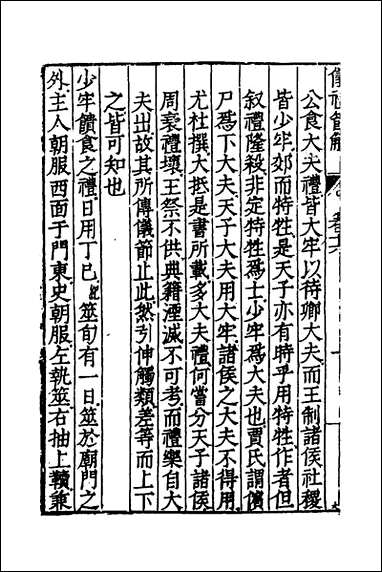 公食大夫禮皆大牢以待卿大夫而王制諸侯社稷
皆少牢郊而特牲是天子亦有時乎用特牲作者但
叙禮隆殺非定特牲爲士少牢爲大夫也賈氏謂儐
尸爲下大夫天子大夫用大牢諸侯之大夫不得用
尤杜撰大抵是書所載多大夫禮何嘗分天子諸侯
周衰禮壞王祭不供典籍湮滅不可考而禮樂自大
夫出故其所傳儀節止此然引伸觸類差等而上下
之皆可知也
少牢饋食之禮日用丁巳筮旬有一日筮於廟門之
外主人朝服西面于門東史朝服左執筮右抽上韇兼